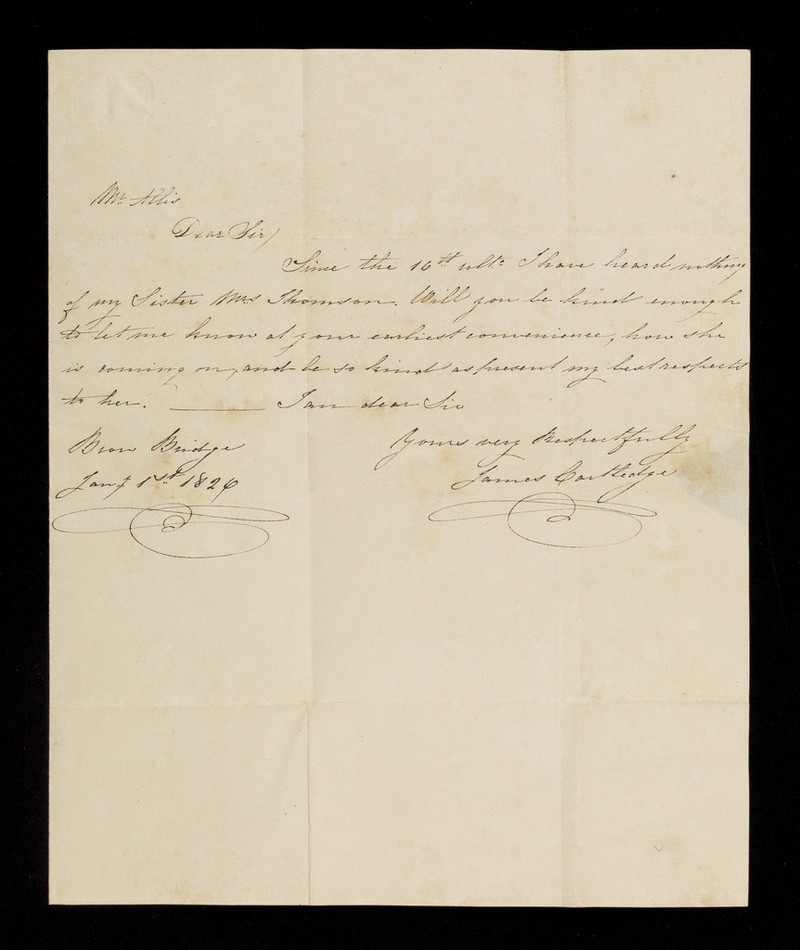 Mr. Allis
Dear Sir)
Since the 16th ulto. I have heard nothing
of my Sister Mrs Thomson. Will you be kind enough
to let me know at your earliest convenience, how she
is coming on, and be so kind as present my best respects
to her. ——— I am dear Sir
Brow Bridge Yours very Respectfully
Jany 1st 1826 James Cartledge